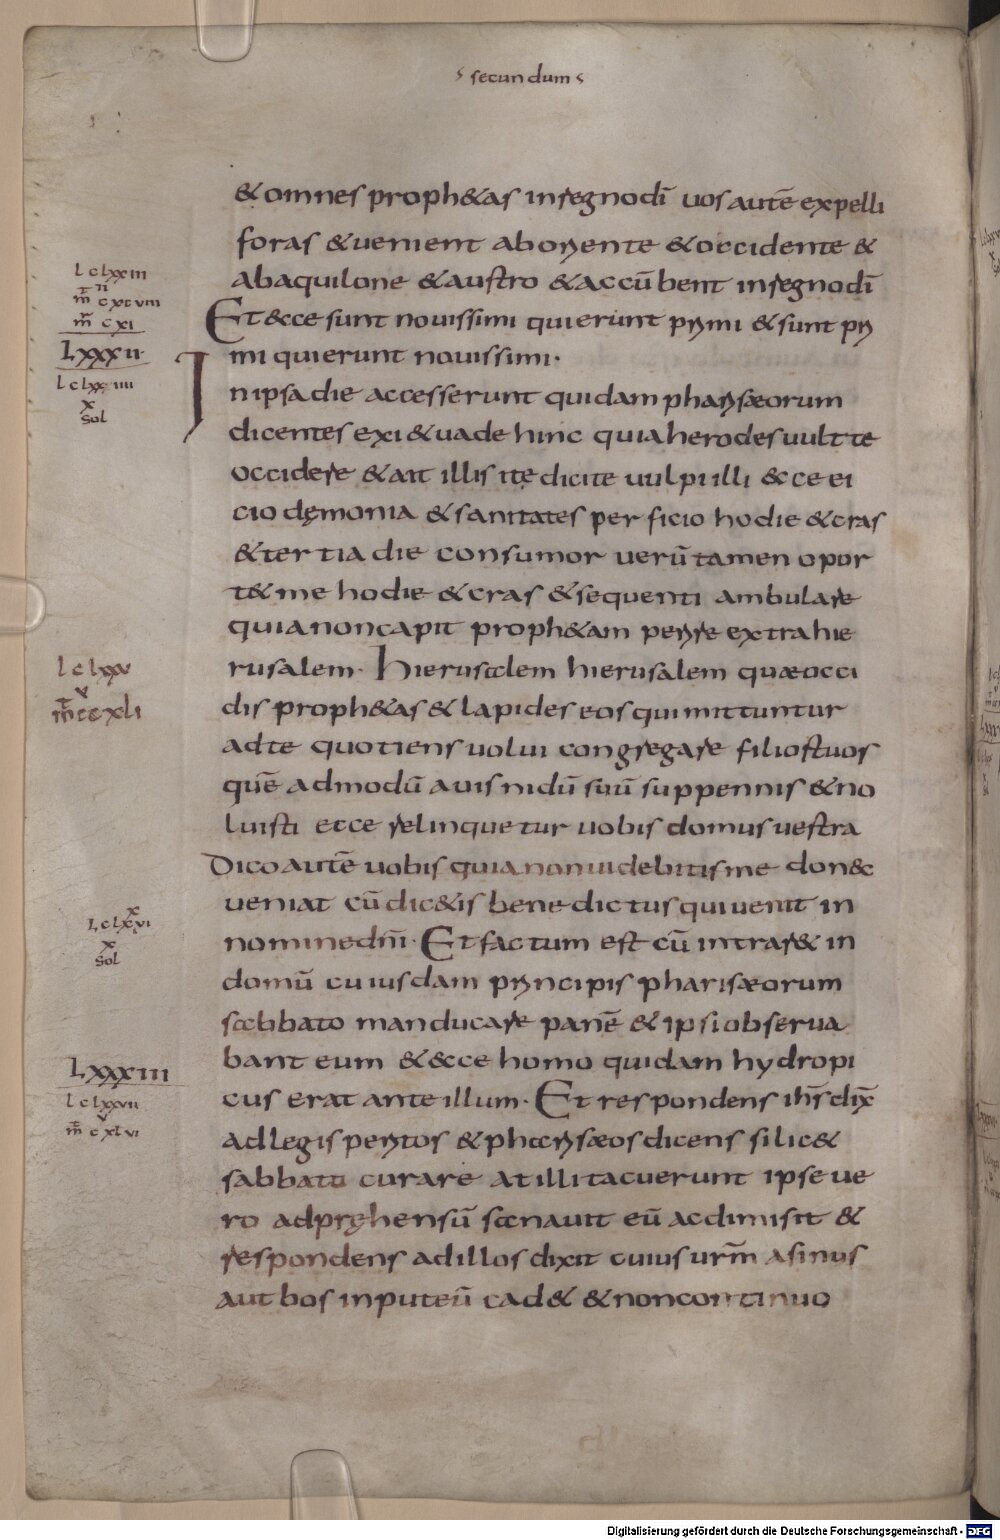 secundum
& omnes proph&as in regno dī uos autē expelli
foras & uenient ab oriente & occidente &
ab aquilone & austro & accūbent in regno dī
Et &ce sunt nouissimi qui erunt primi & sunt pri
mi qui erunt nouissimi·
lclxxiii
ii
m̄ cxcviii
m̄ cxi
Lxxxii
lclxxiiii
x
sol
In ipsa die accesserunt quidam pharisæorum
dicentes exi & uade hinc quia herodes uult te
occidere & ait illis ite dicite uulpi illi &ce ei
cio dęmonia & sanitates perficio hodie & cras
& tertia die consumor uerūtamen opor
t& me hodie & cras & sequenti ambulare
quia non capit proph&am perire extra hie
rusalem· Hierusalem hierusalem quæ occi
lclxxv
v
m̄ ccxli
dis proph&as & lapides eos qui mittuntur
ad te quotiens uolui congregare filios tuos
quē admodū auis nidū suū sup pennis & no
luisti ecce relinquetur uobis domus uestra
Dico autē uobis quia non uidebitis me donec
ueniat cū dic&is benedictus qui uenit in
nomine dn̄i· Et factum est cū intrar& in
lclxxvi
x
sol
domū cuiusdam principis pharisæorum
sabbato manducare panē & ipsi obserua
bant eum & &ce homo quidam hydropi
Lxxxiii
cus erat ante illum· Et respondens ihs̄ dix̄
lclxxvii
v
m̄ cxlvi
ad legis peritos & pharisæos dicens si lic&
sabbato curare at illi tacuerunt ipse ue
ro adpręhensū sanauit eū ac dimisit &
respondens ad illos dixit cuius urm̄ asinus
aut bos in puteū cad& & non continuo
Digitalisierung gefördert durch die Deutsche Forschungsgemeinschaft - DFG